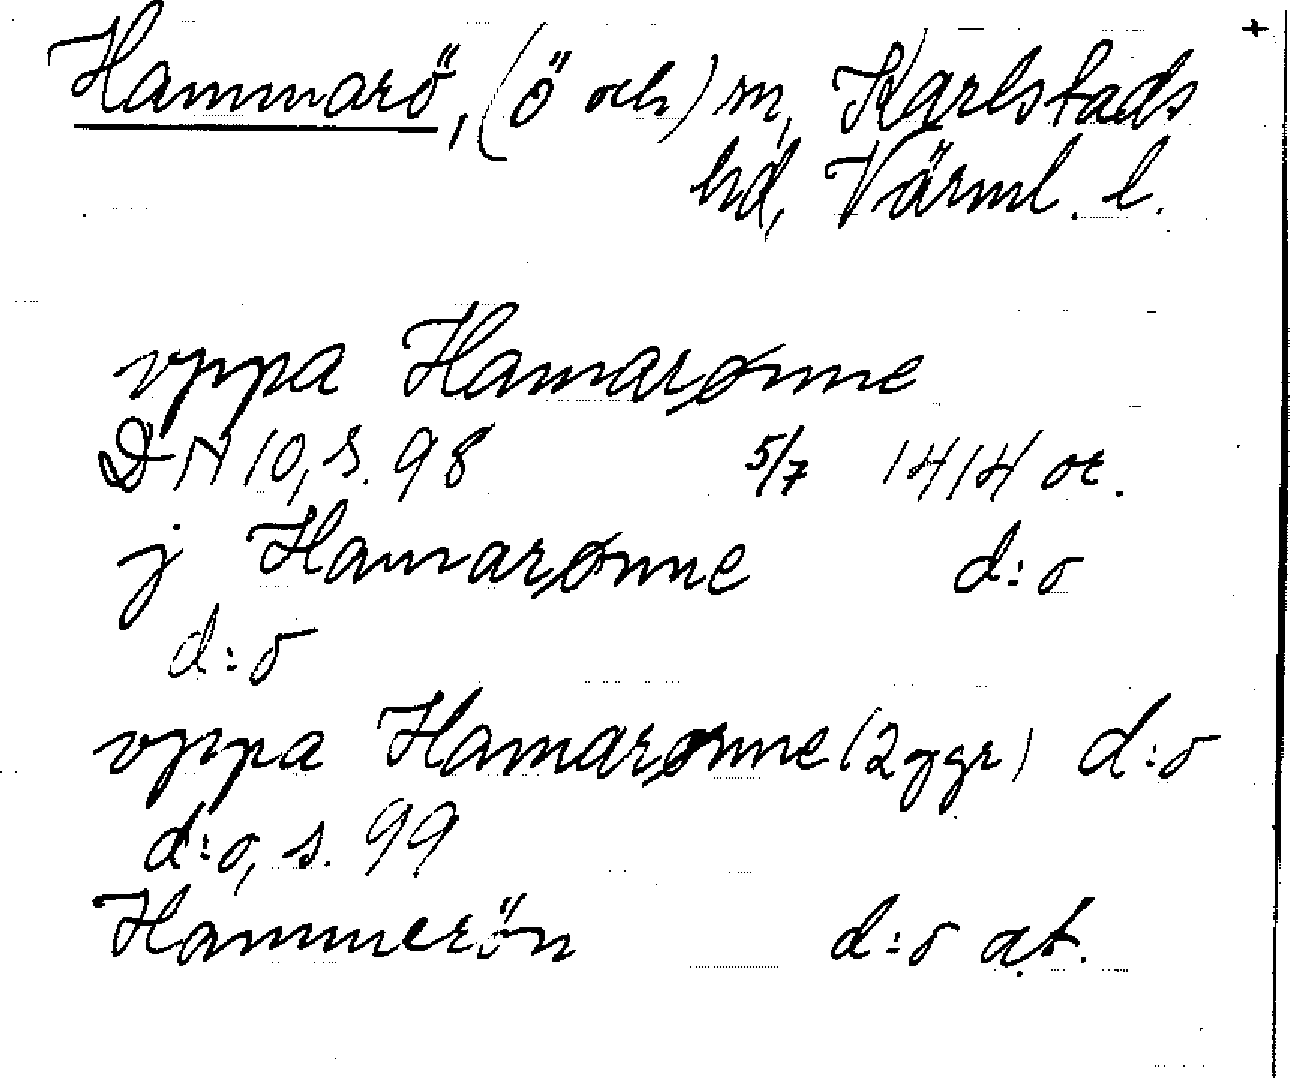 +
Hammarö, (ö och) sn, Karlstads
hd, Värml. l.
vppa Hamarønne
DN 10, s. 98 5/7 1414 or.
j Hamarønne d:o
d:o
vppa Hamarønne (2 ggr) d:o
d:o, s. 99
Hammerön d:o a.t.